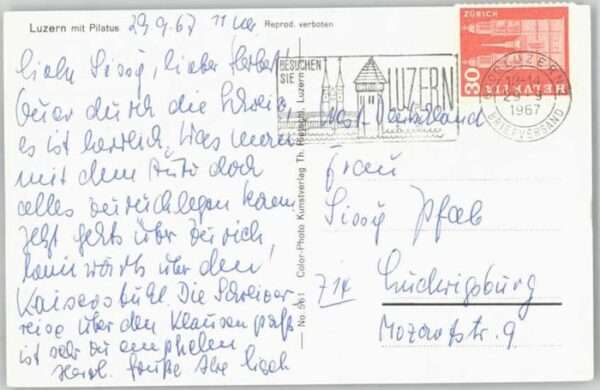 Luzern mit Pilatus
29.9.67 11 Uhr
Reprod. verboten
Liebe Sissy, lieber Herbert
Quer durch die Schweiz
es ist herrlich, was man
mit dem Auto doch
alles zurücklegen kann
Jetzt gehts über Zürich,
heimwärts über den
Die Schweizer
reise über den Klausenpaß
ist sehr zu empfehlen
Herzl. Grüße
No. 561 Color-Photo Kunstverlag Th. Luzern
BESUCHEN
SIE
LUZERN
ZÜRICH
30
HELVETIA
LUZERN
1967
BRIEFVERSAND
West Deutschland
Frau
Sissy Pfab
714 Ludwigsburg
Mozartstr. 9